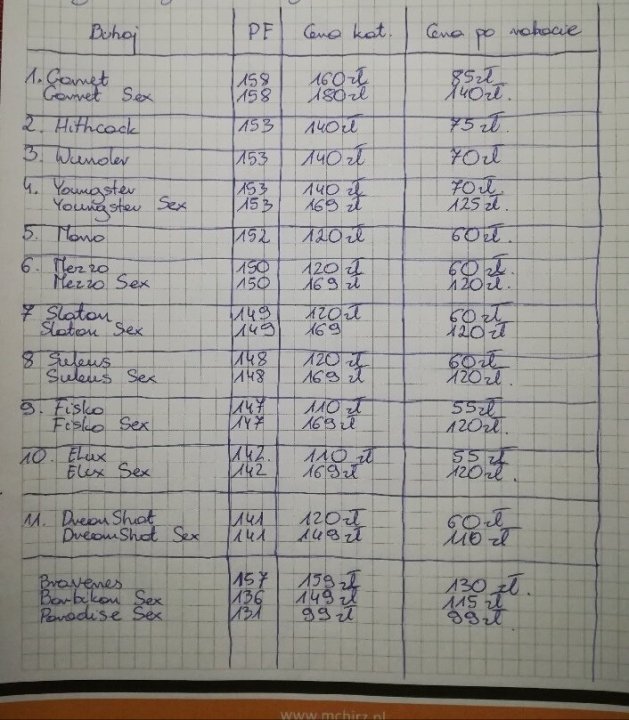 Buhaj PF Cena kat. Cena po rabacie
1. Comet 158 160zł 85zł
Comet Sex 158 180zł 140zł.
2. Hithcock 153 140zł 75zł.
3. Wunder 153 140zł 70zł
4. Youngster 153 140zł 70zł.
Youngster Sex 153 169zł 125zł.
5. Mono 152 120zł 60zł.
6. Mezzo 150 120zł 60zł.
Mezzo Sex 150 169zł 120zł.
7 Slaton 149 120zł 60zł
Slaton Sex 149 169 120zł
8 Suleus 148 120zł 60zł
Suleus Sex 148 169zł 120zł.
9. Fisko 147 110zł 55zł
Fisko Sex 147 169zł 120zł.
10. Elux 142. 110zł 55zł
Elux Sex 142 169zł 120zł.
11. DreamShot 141 120zł 60zł
DreamShot Sex 141 149zł 110zł
Bravenes 157 159zł 130zł.
Barbikan Sex 136 149zł 115zł
Paradise Sex 131 99zł 99zł
www.mchirz.pl